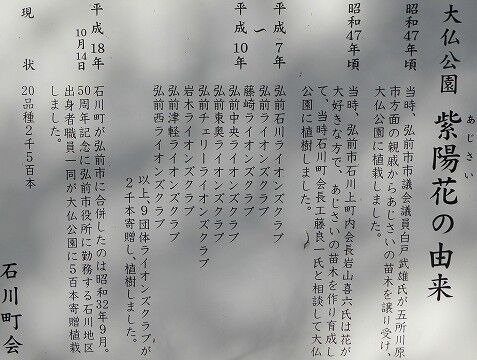 大仏公園 紫陽花の由来
あじさい
昭和47年頃
当時、弘前市市議会議員白戸武雄氏が五所川原
市方面の親戚からあじさいの苗木を譲り受け、
大仏公園に植栽しました。
昭和47年頃
当時、弘前市石川上町内会長岩山喜六氏は花が
大好きな方で、あじさいの苗木を作り育成し
て、当時石川町会長工藤良一氏と相談して大仏
公園に植樹しました。
平成7年
〜
平成10年
弘前石川ライオンズクラブ
弘前ライオンズクラブ
藤崎ライオンズクラブ
弘前中央ライオンズクラブ
弘前東奥ライオンズクラブ
弘前チェリーライオンズクラブ
岩木ライオンズクラブ
弘前津軽ライオンズクラブ
弘前西ライオンズクラブ
以上、9団体ライオンズクラブが
2千本寄贈し、植樹しました。
平成18年
10月14日
石川町が弘前市に合併したのは昭和32年9月。
50周年記念に弘前市役所に勤務する石川地区
出身者職員一同が大仏公園に5百本寄贈植栽
しました。
現状
20品種2千5百本
石川町会